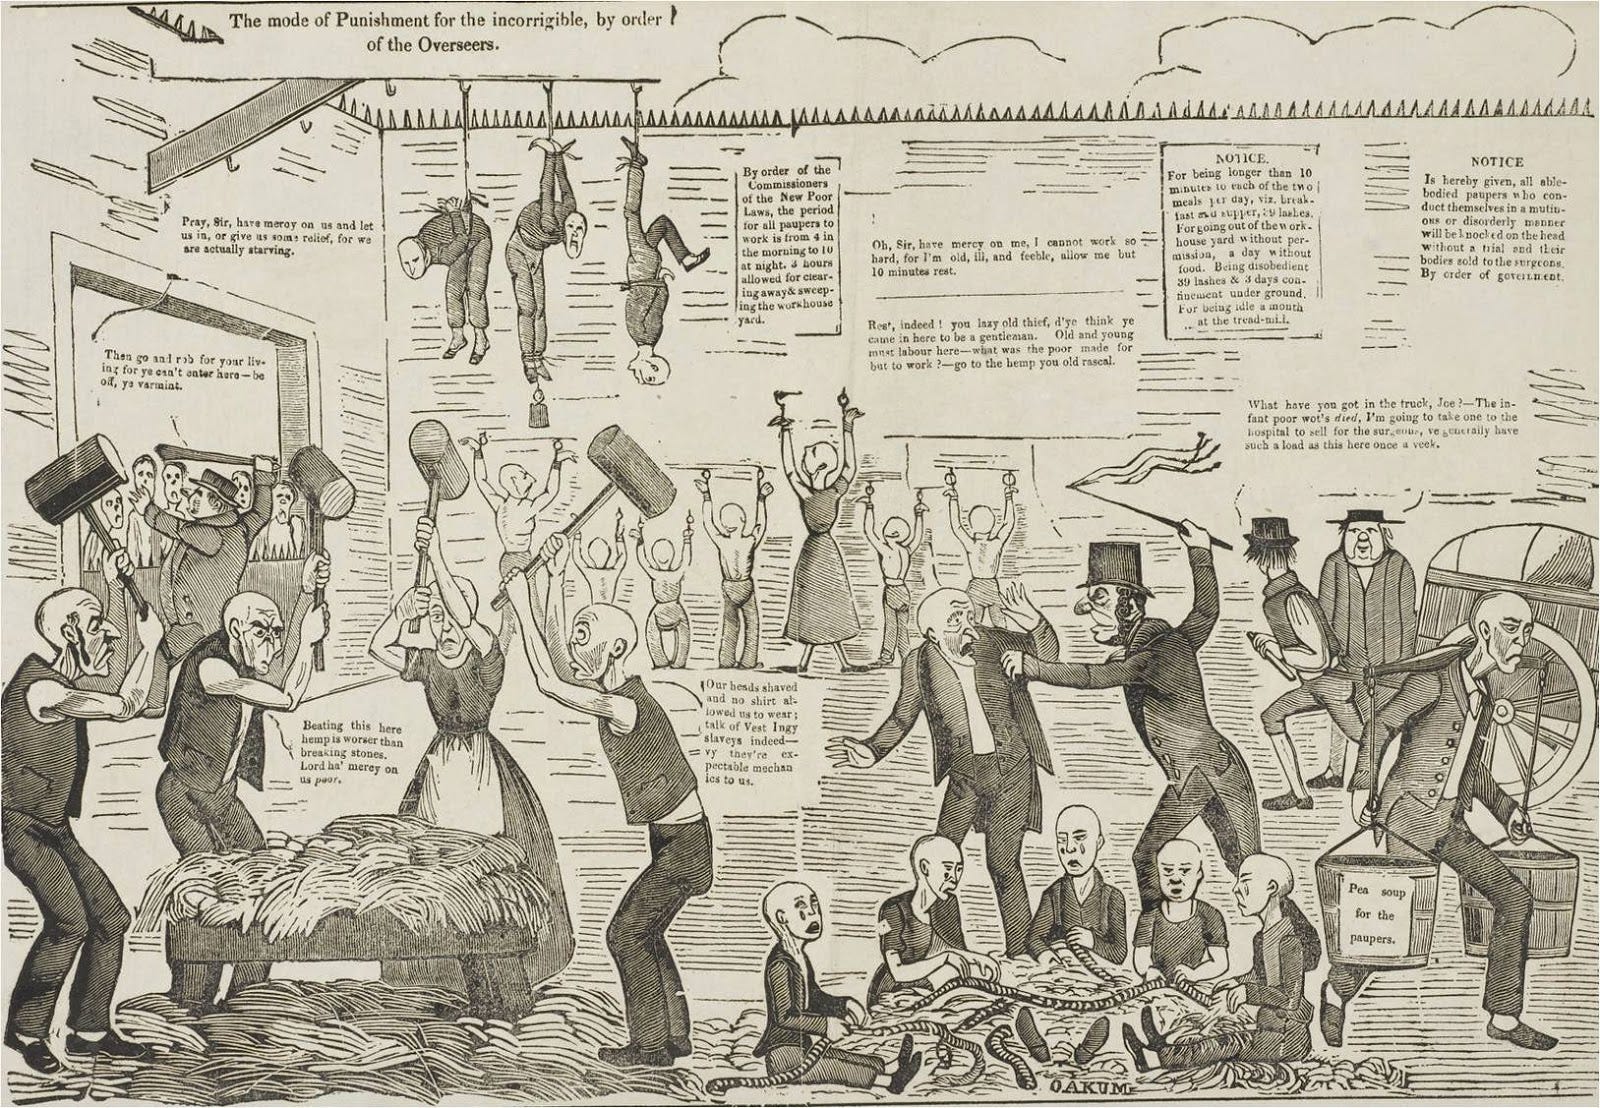 The mode of Punishment for the incorrigible, by order
of the Overseers.
Pray, Sir, have mercy on us and let
us in, or give us some relief, for we
are actually starving.
Then go and rob for your liv-
ing for ye can't enter here—be
off, ye varmint.
By order of the
Commissioners
of the New Poor
Laws, the period
for all paupers to
work is from 4 in
the morning to 10
at night. 3 hours
allowed for clear-
ing away & sweep-
ing the workhouse
yard.
Oh, Sir, have mercy on me, I cannot work so
hard, for I'm old, ill, and feeble, allow me but
10 minutes rest.
Rest, indeed! you lazy old thief, d'ye think ye
came in here to be a gentleman. Old and young
must labour here—what was the poor made for
but to work?—go to the hemp you old rascal.
NOTICE.
For being longer than 10
minutes to each of the two
meals per day, viz. break-
fast and supper, 29 lashes.
For going out of the work-
house yard without per-
mission, a day without
food. Being disobedient
39 lashes & 3 days con-
finement under ground.
For being idle a month
at the tread-mill.
NOTICE
Is hereby given, all able-
bodied paupers who con-
duct themselves in a mutin-
ous or disorderly manner
will be knocked on the head
without a trial and their
bodies sold to the surgeons.
By order of government.
What have you got in the truck, Joe?—The in-
fant poor wot's died, I'm going to take one to the
hospital to sell for the surgeons, ve generally have
such a load as this here once a veek.
Beating this here
hemp is worser than
breaking stones.
Lord ha' mercy on
us poor.
Our heads shaved
and no shirt al-
lowed us to wear;
talk of Vest Ingy
slaveys indeed—
vy they're ex-
pectable mechan
ics to us.
Pea soup
for the
paupers.
OAKUM